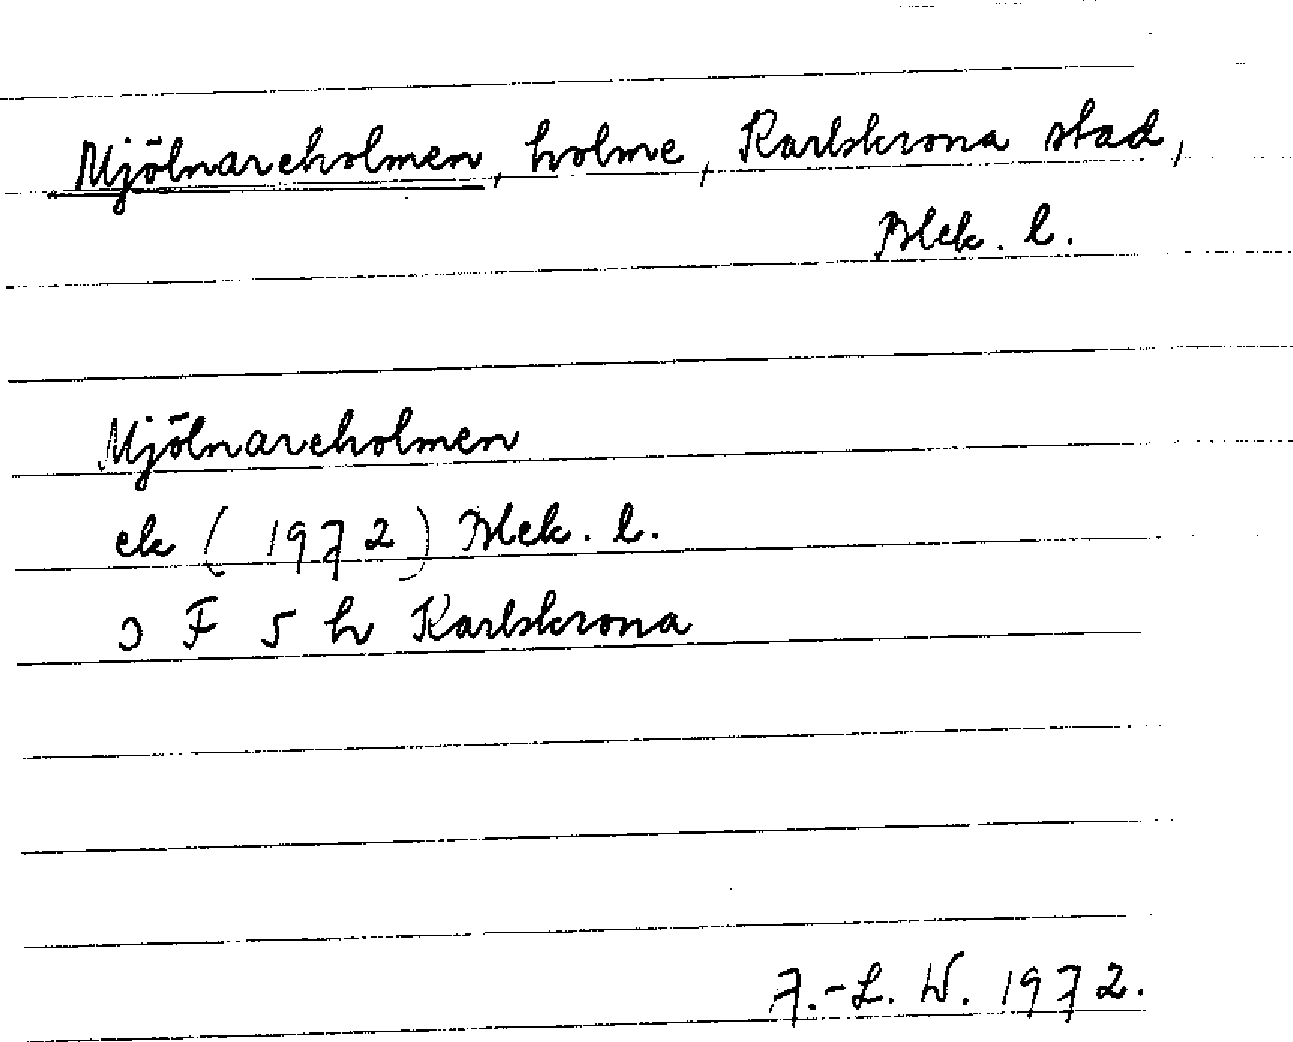 Mjölnareholmen, holme, Karlskrona stad,
Blek. l.
Mjölnareholmen
ek (1972) Blek. l.
ɔ F 5 h Karlskrona
A.-L. W. 1972.